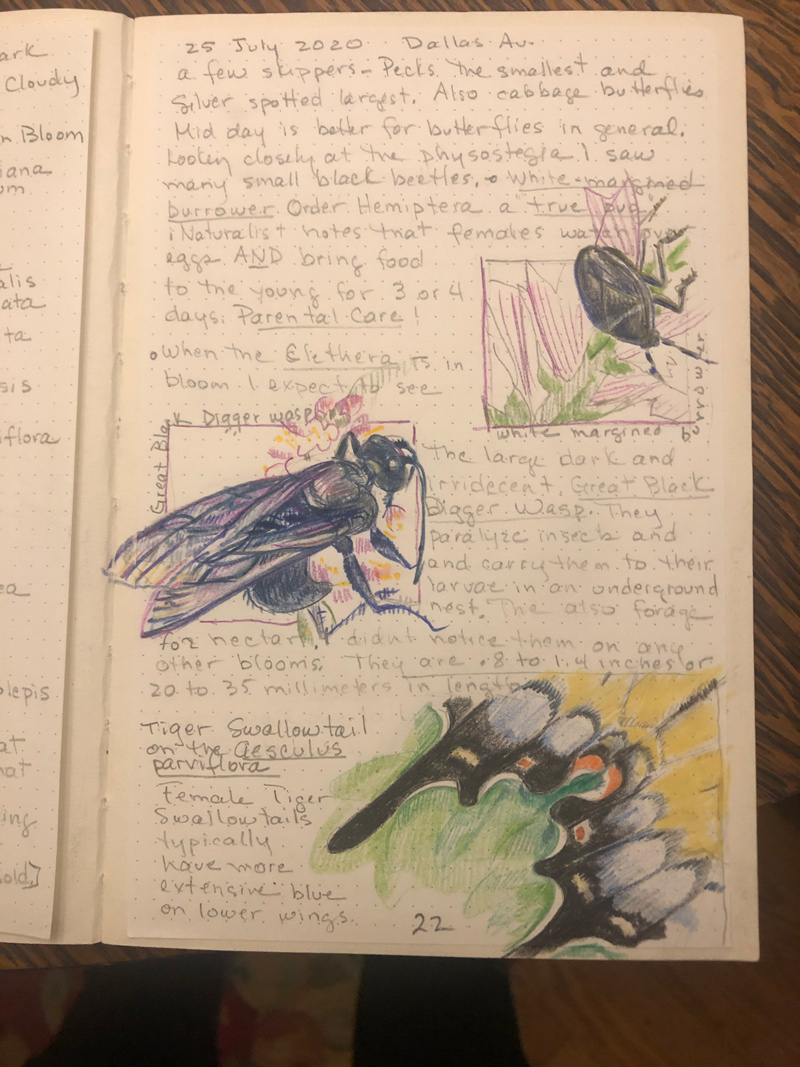 ark
Cloudy
n Bloom
iana
um
alis
ata
ta
sis
iflora
ea
olepis
at
hat
ing
old]
25 July 2020 Dallas Av.
a few skippers - Pecks the smallest and
Silver spotted largest. Also cabbage butterflies
Mid day is better for butterflies in general.
Looken closely at the physostegia I saw
many small black beetles. White-margined
burrower. Order Hemiptera a true bug
iNaturalist notes that females watch over
eggs AND bring food
to the young for 3 or 4
days. Parental Care!
When the Clethera is in
bloom I expect to see
Great Black Digger wasp
white margined burrower
The large dark and
irridecent, Great Black
Digger Wasp. They
paralyze insects and
and carry them to their
larvae in an underground
nest. The also forage
for nectar. I didnt notice them on any
other blooms. They are .8 to 1.4 inches or
20 to 35 millimeters in length
Tiger Swallowtail
on the Aesculus
parviflora
Female Tiger
Swallowtails
typically
have more
extensive blue
on lower wings.
22